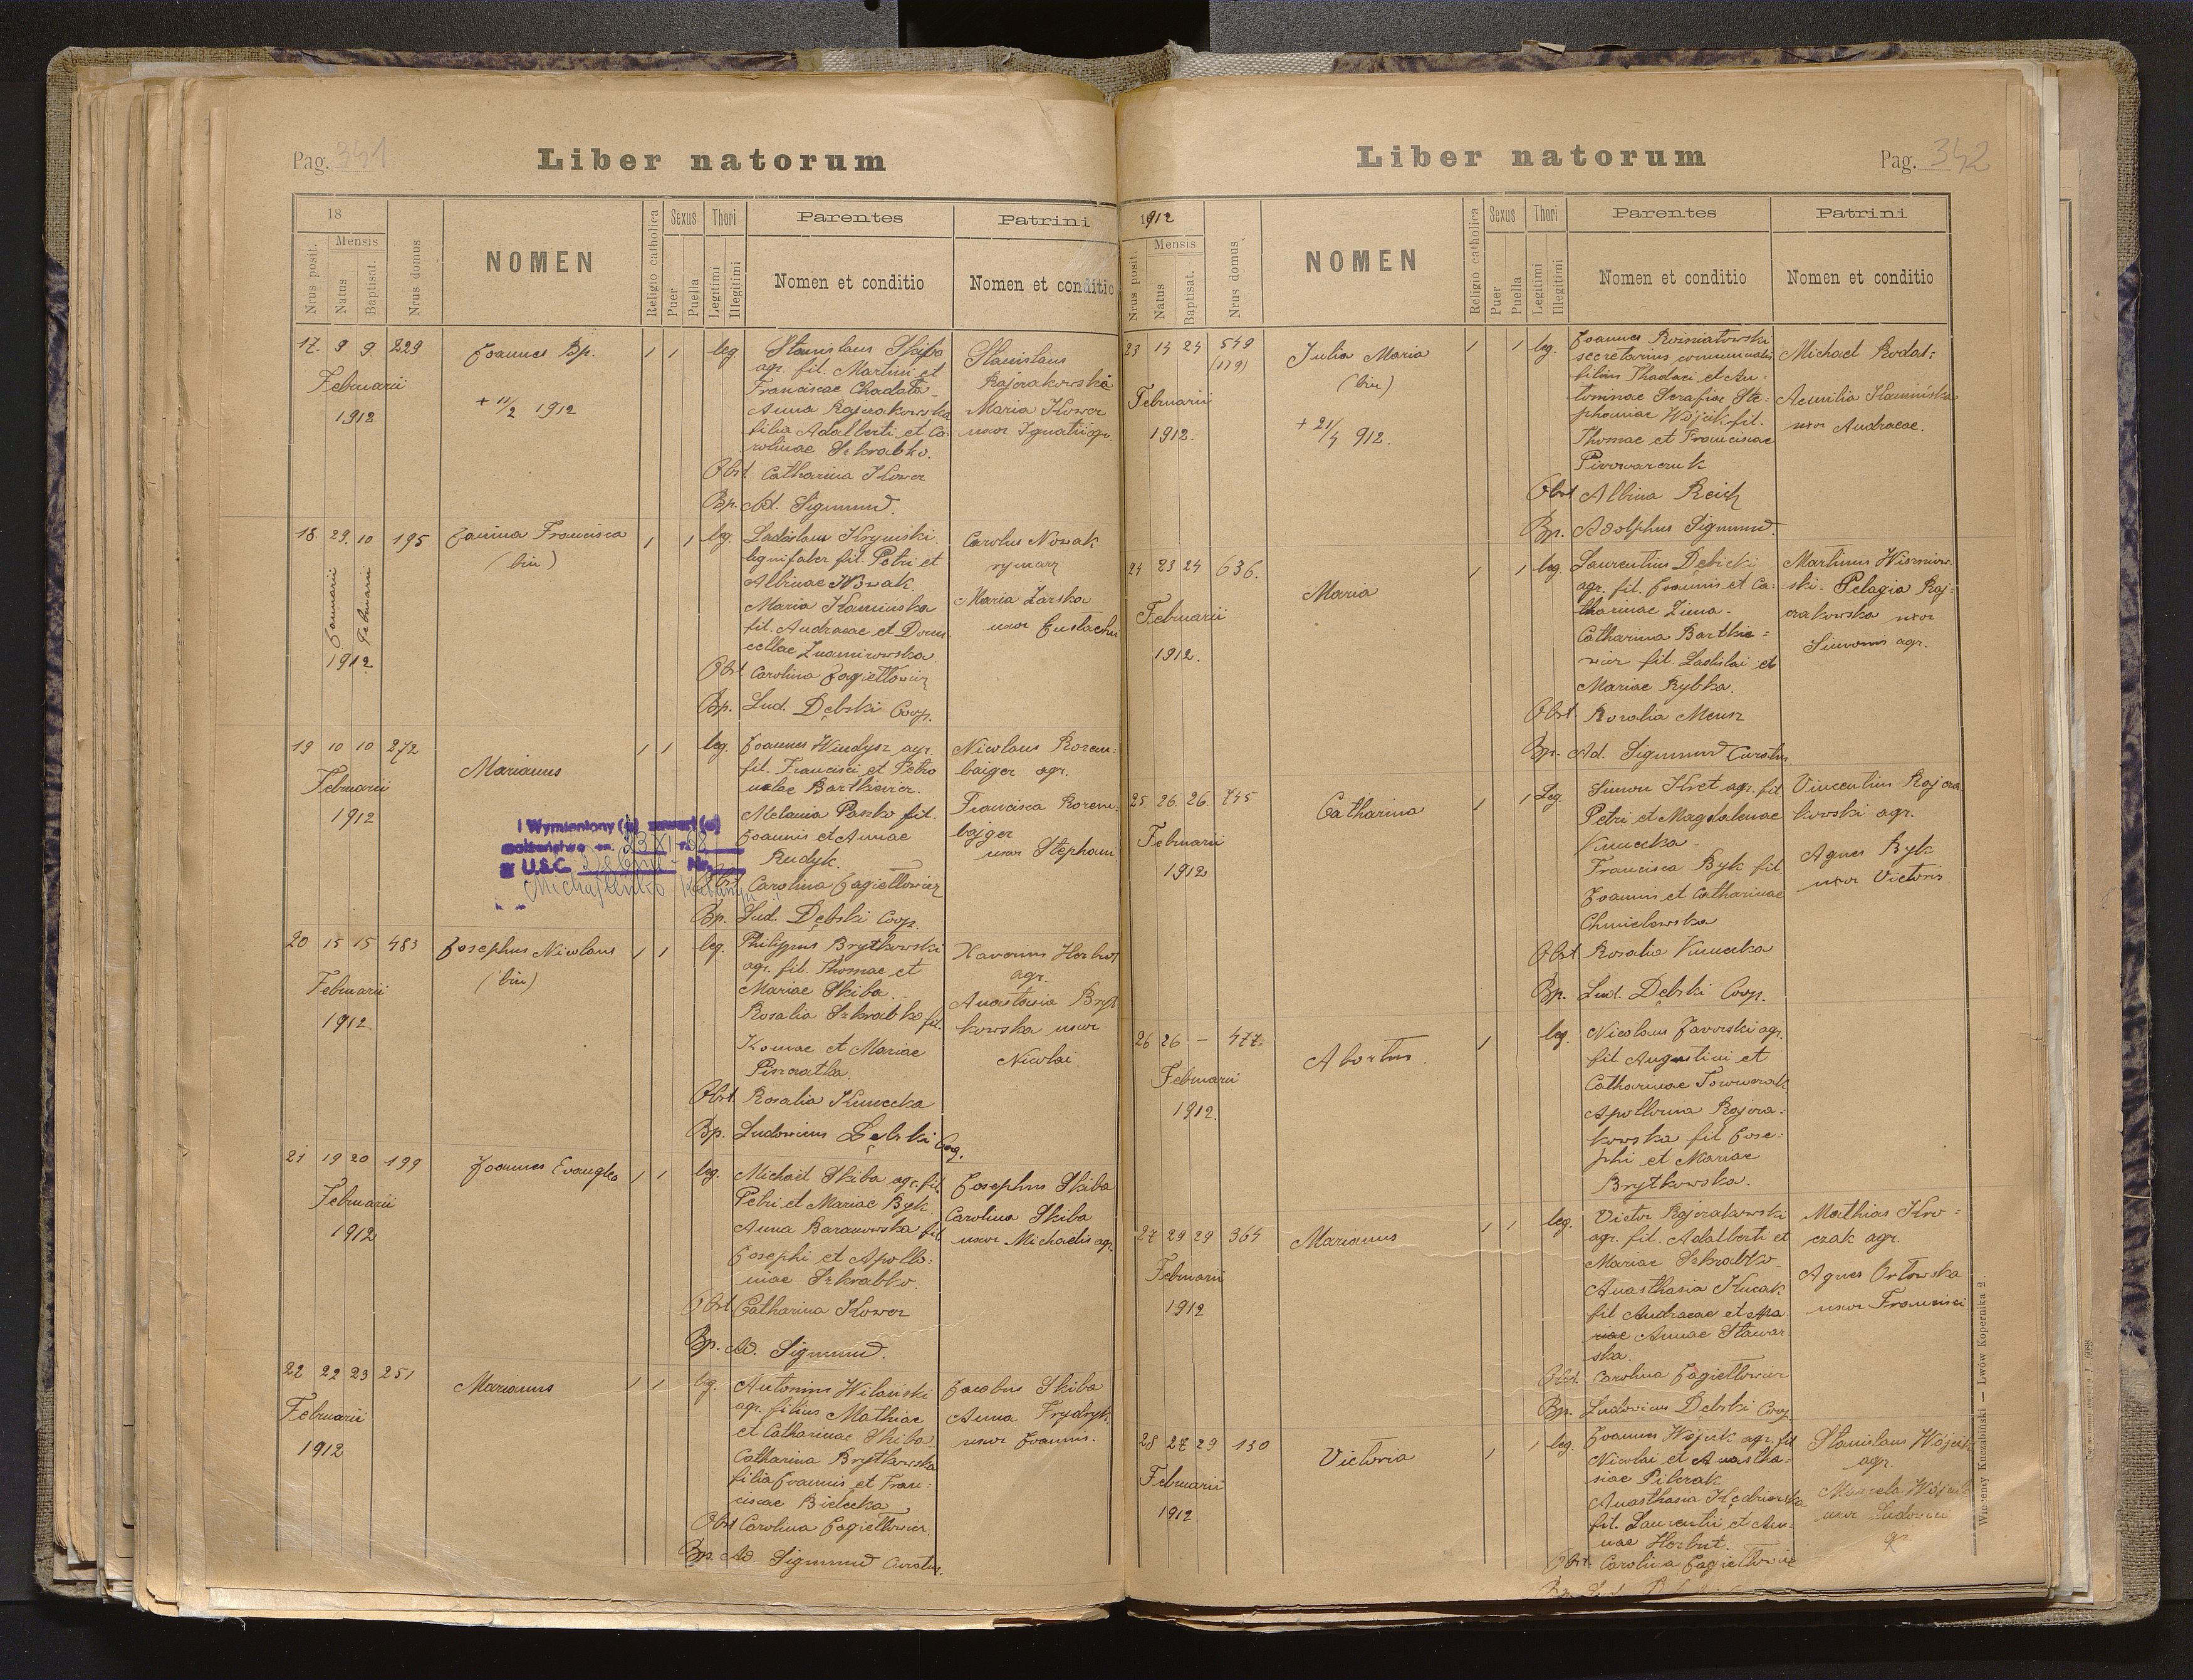 Pag. 341
Liber natorum
18
Mensis
Nrus posit.
Natus
Baptisat.
Nrus domus
NOMEN
Religio catholica
Sexus
Puer
Puella
Thori
Legitimi
Illegitimi
Parentes
Nomen et conditio
Patrini
Nomen et conditio
17. 9 9 229
Februarii
1912
Joannes Bp.
+ 11/2 1912
1 1 leg.
Stanislaus Skiba
agr. fil. Martini et
Franciscae Chadata
Anna Rajzakowska
filia Adalberti et Ca-
rolinae Szkrabko.
Obst. Catharina Kower
Bp. Ad. Sigmund.
Stanislaus
Maria Kower
uxor Ignatii agr.
18. 29. 10 195
Januarii
Februarii
1912
Janina Francisca
(bin)
1 1 leg.
Ladislaus Krynski
lignifaber fil. Petri et
Albinae Nowak
Maria Kaminska
fil. Andraeae et Dom
cellae
Obst. Carolina Jagiełłowicz
Bp. Lud. Dębski Coop.
Carolus Nowak
rymarz
Maria Żarska
uxor Eustachii
19 10 10 272
Februarii
1912
Marianus
1 1 leg.
Joannes Windysz agr.
fil. Francisci et Petro
nelae Bartkiewicz.
Melania Paszko fil.
Joannis et Annae
Rudyk.
Obst. Carolina Jagiełłowicz
Bp. Lud. Dębski Coop.
Nicolaus Rozen-
baiger agr.
Francisca Rozem
bajger
uxor Stephani
I Wymieniony (a) zawarł (a)
małżeństwo dn. 23 XI 68 r.
w U.S.C. Nr.
20 15 15 483
Februarii
1912
Josephus Nicolaus
(bin)
1 1 leg.
Philippus Brytkowski
agr. fil. Thomae et
Mariae Skiba.
Rosalia Szkrabko fil.
et Mariae
Obst. Rosalia Kunecka
Bp. Ludovicus Dębski Coop.
Xaverius Horbut
agr.
Anastasia Bryt
kowska uxor
Nicolai
21 19 20 199
Februarii
1912
Joannes Evangelis
1 1 leg.
Michaël Skiba agr. fil.
Petri et Mariae Byk.
Anna Baranowska fil.
Josephi et Apollo-
niae Szkrabko.
Obst. Catharina Kower
Bp. Ad. Sigmund.
Josephus Skiba
Carolina Skiba
uxor Michaelis agr.
22 22 23 251
Februarii
1912
Marianus
1 1 leg.
Antonius Wilanski
agr. filius Mathiae
et Catharinae Skiba.
Catharina Brytkowska
filia Joannis et Fran-
ciscae Bielecka
Obst. Carolina Jagiełłowicz.
Bp. Ad. Sigmund Curatus.
Jacobus Skiba
Anna Frydryk.
uxor Joannis.
Liber natorum
Pag. 342
1912
Mensis
Nrus posit.
Natus
Baptisat.
Nrus domus
NOMEN
Religio catholica
Sexus
Puer
Puella
Thori
Legitimi
Illegitimi
Parentes
Nomen et conditio
Patrini
Nomen et conditio
23 14 24 549
(119)
Februarii
1912.
Julia Maria
(bin)
+ 21/4 912.
1 1 leg.
Joannes Rozniatowski
secretarius communalis
filius Thadaei et An-
tominae Serafin Ste-
phaniae Wójcik fil.
Thomae et Franciscae
Piwowarczuk
Obst. Albina Reich
Bp. Adolphus Sigmund.
Michael Rodat-
Aemilia Kamińska
uxor Andraeae.
24 23 24 636.
Februarii
1912.
Maria
1 1 leg.
Laurentius Dębicki
agr. fil. Joannis et Ca-
tharinae Zima.
Catharina Bartkie-
wicz fil. Ladislai et
Mariae Rybka.
Obst. Rosalia Meusz
Bp. Ad. Sigmund Curatus.
Martinus Wiśniew
ski. Pelagia Raj-
zakowska uxor
Simonis agr.
25 26 26. 745
Februarii
1912
Catharina
1 1 Leg.
Simon Kret agr. fil.
Petri et Magdalenae
Kunecka.
Francisca Byk fil.
Joannis et Catharinae
Chmielowska
Obst. Rosalia Kunecka
Bp. Lud. Dębski Coop.
Vincentius Rajzza
kowski agr.
Agnes Byk
uxor Victoris
26 26 - 477.
Februarii
1912.
Abortus.
1 leg.
Nicolaus Jaworski agr.
fil. Augustini et
Catharinae
Apollonia Rajzza-
kowska fil Jose-
phi et Mariae
Brytkowska.
27 29 29 364
Februarii
1912
Marianus
1 1 leg.
Victor Rajzakowski
agr. fil. Adalberti et
Mariae Szkrabko.
Anasthasia Kucak
fil Andraeae et Ma
riae Annae Stawar
ska.
Obst. Carolina Jagiełłowicz
Bp. Ludovicus Dębski Coop.
Mathias Kro-
czak agr.
Agnes Orłowska
uxor Francisci
28 27 29 130
Februarii
1912.
Victoria
1 1 leg.
Joannes Wójcik agr. fil
Nicolai et Anastha-
siae Pilczak
Anasthasia Kędziorska
fil. Laurentii et An-
nae Horbut.
Obst. Carolina Jagiełłowicz
Stanislaus Wójcik
agr.
Marcela Wójcik
uxor Ludovici
Wincenty Kuczabiński — Lwów Kopernika 2.